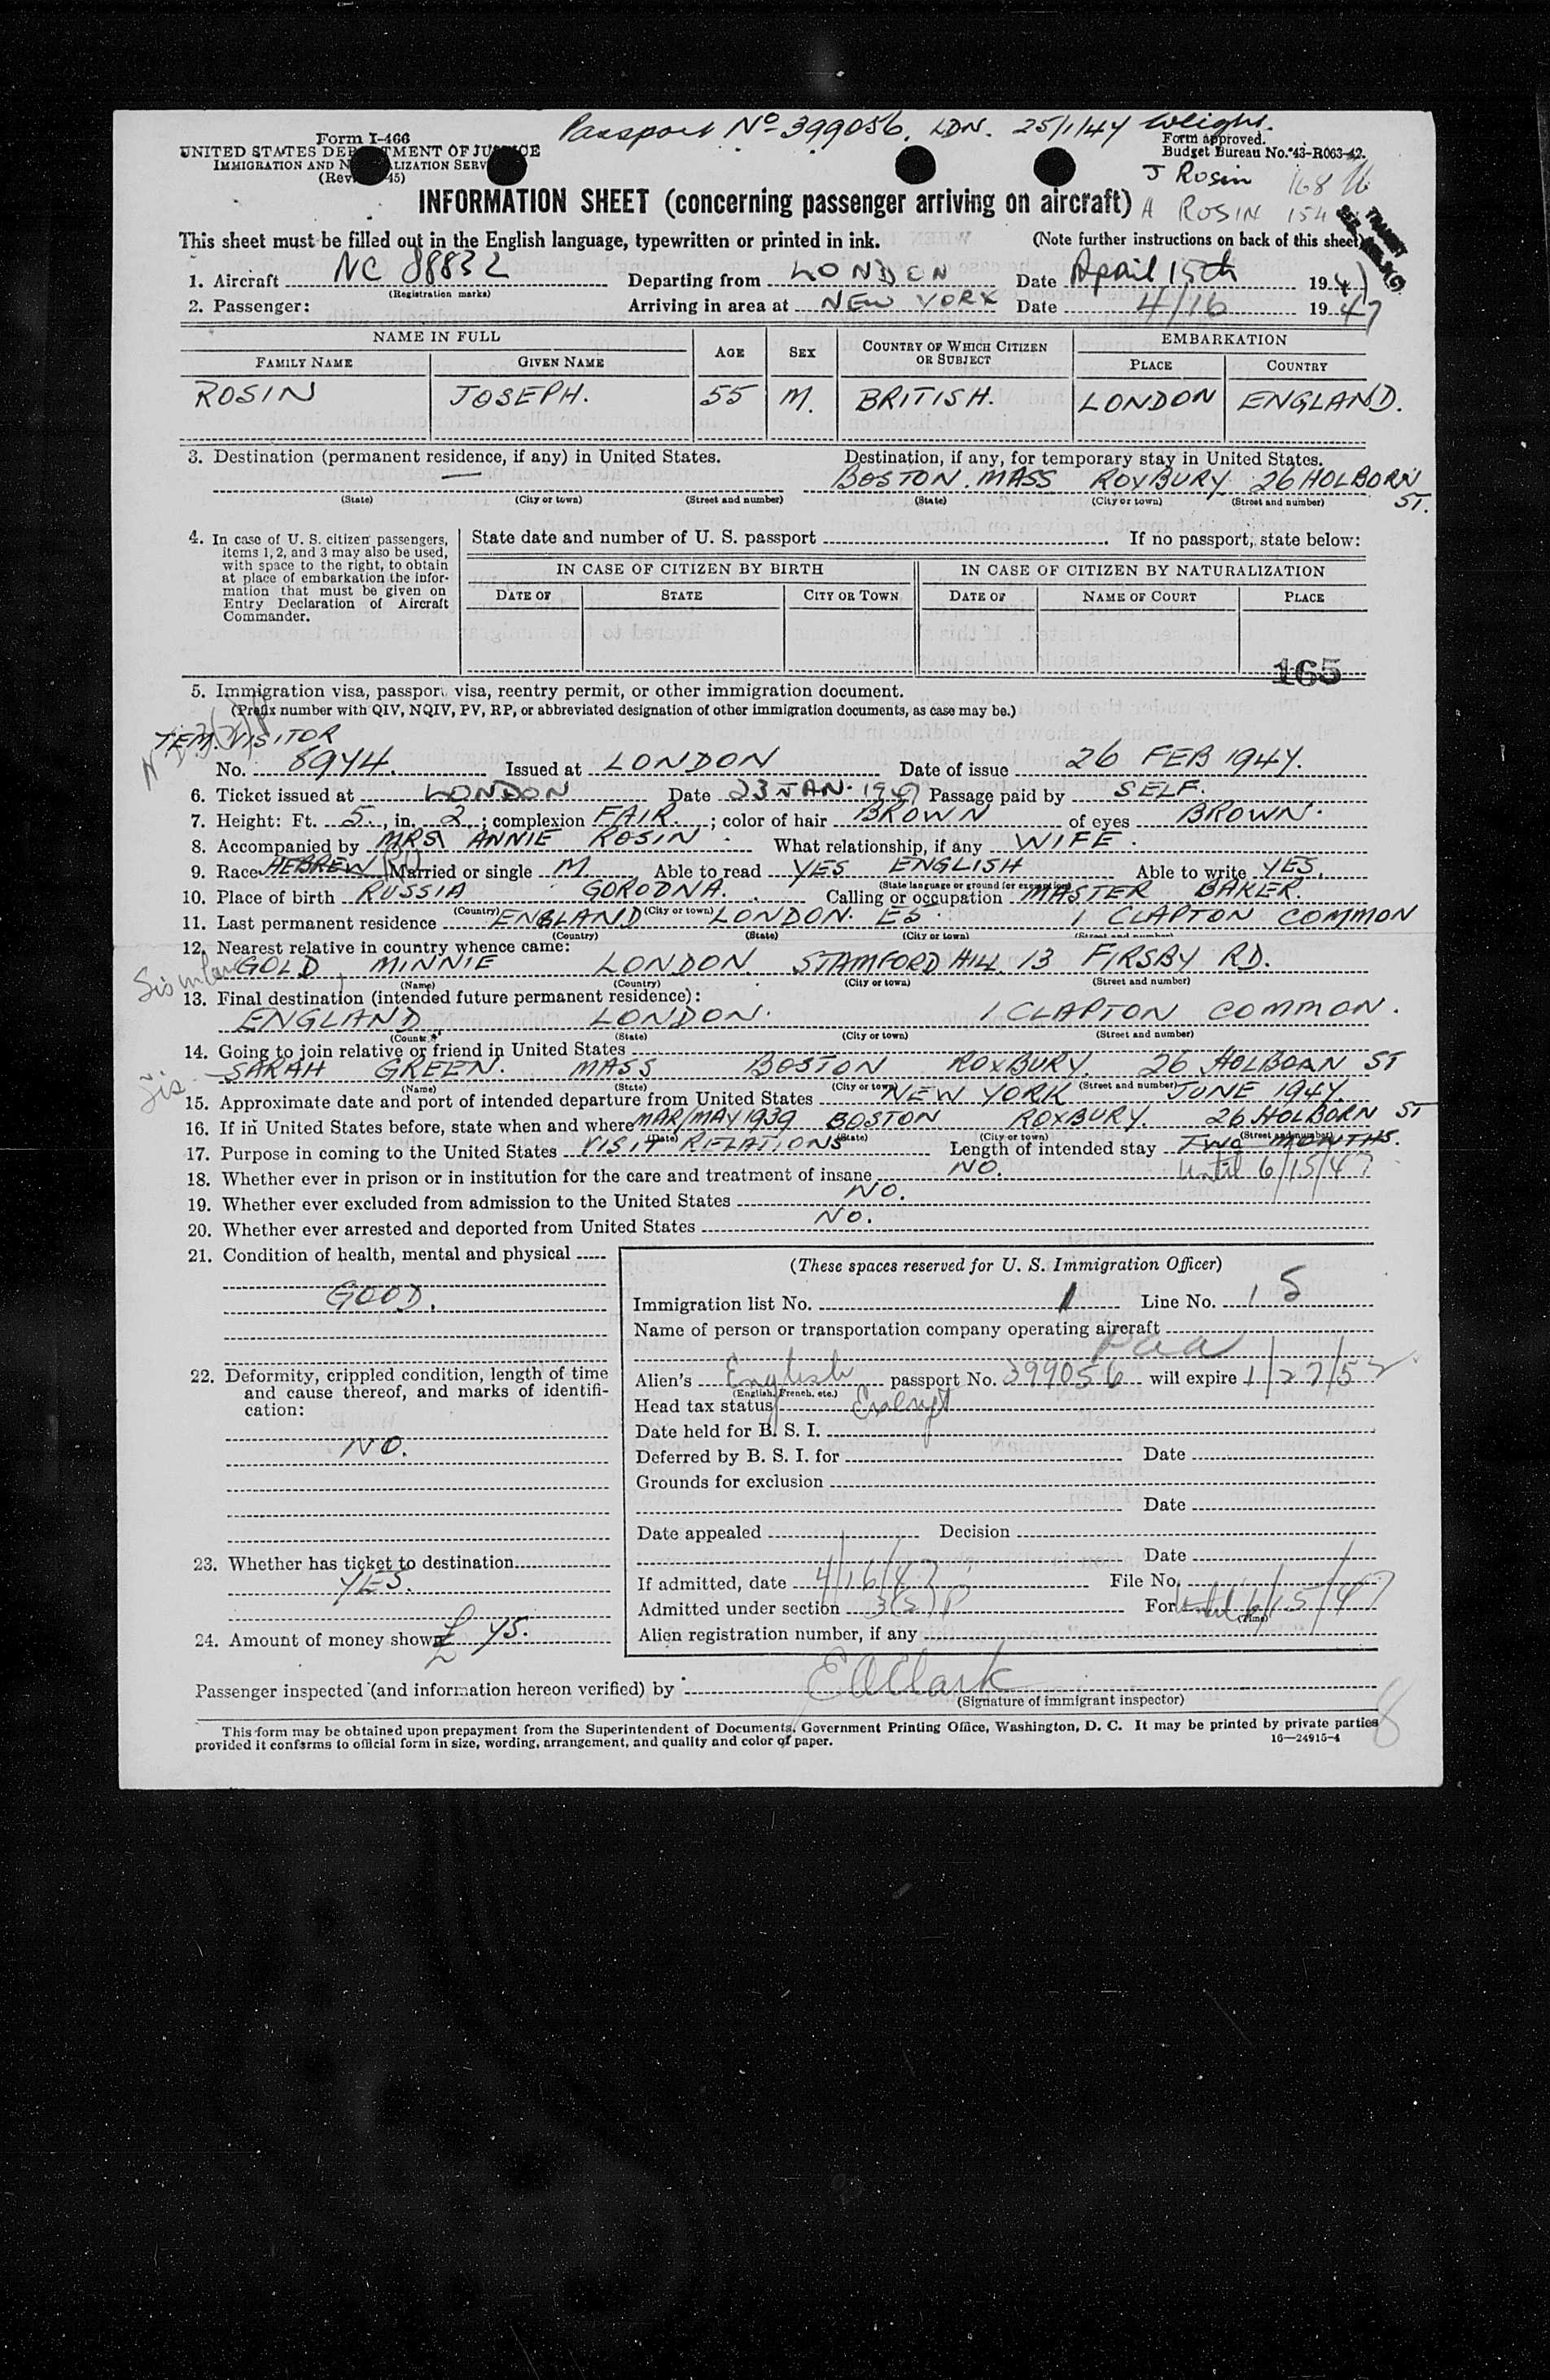 Passport Nº 399056. LDN. 25/1/47 Weight.
Form I-466
UNITED STATES DEPARTMENT OF JUSTICE
IMMIGRATION AND NATURALIZATION SERV
(Rev. 45)
Form approved.
Budget Bureau No. 43-R063-42.
J Rosin 168
A ROSIN 154
INFORMATION SHEET (concerning passenger arriving on aircraft)
This sheet must be filled out in the English language, typewritten or printed in ink. (Note further instructions on back of this sheet)
1. Aircraft NC 88832 Departing from LONDON Date April 15th 1947
(Registration marks)
2. Passenger: Arriving in area at NEW YORK Date 4/16 1947
NAME IN FULL AGE SEX COUNTRY OF WHICH CITIZEN OR SUBJECT EMBARKATION
FAMILY NAME GIVEN NAME PLACE COUNTRY
ROSIN JOSEPH. 55 M. BRITISH. LONDON ENGLAND.
3. Destination (permanent residence, if any) in United States. Destination, if any, for temporary stay in United States.
— BOSTON. MASS ROXBURY 26 HOLBORN ST.
(State) (City or town) (Street and number) (State) (City or town) (Street and number)
4. In case of U. S. citizen passengers, items 1, 2, and 3 may also be used, with space to the right, to obtain at place of embarkation the information that must be given on Entry Declaration of Aircraft Commander.
State date and number of U. S. passport If no passport, state below:
IN CASE OF CITIZEN BY BIRTH IN CASE OF CITIZEN BY NATURALIZATION
DATE OF STATE CITY OR TOWN DATE OF NAME OF COURT PLACE
165
5. Immigration visa, passport visa, reentry permit, or other immigration document.
(Prefix number with QIV, NQIV, PV, RP, or abbreviated designation of other immigration documents, as case may be.)
TEM. VISITOR
No. 8974. Issued at LONDON Date of issue 26 FEB 1947.
6. Ticket issued at LONDON Date 23 JAN. 1947 Passage paid by SELF.
7. Height: Ft. 5., in. 2.; complexion FAIR.; color of hair BROWN of eyes BROWN.
8. Accompanied by MRS. ANNIE ROSIN. What relationship, if any WIFE.
9. Race HEBREW RU Married or single M Able to read YES ENGLISH Able to write YES.
(State language or ground for exemption)
10. Place of birth RUSSIA GORODNA. Calling or occupation MASTER BAKER.
(Country) (City or town)
11. Last permanent residence ENGLAND LONDON. E5. 1 CLAPTON COMMON
(Country) (State) (City or town) (Street and number)
12. Nearest relative in country whence came:
GOLD, MINNIE LONDON. STAMFORD HILL. 13 FIRSBY RD.
(Name) (Country) (City or town) (Street and number)
13. Final destination (intended future permanent residence):
ENGLAND LONDON. 1 CLAPTON COMMON.
(Country) (State) (City or town) (Street and number)
14. Going to join relative or friend in United States
Sis. SARAH GREEN. MASS BOSTON ROXBURY. 26 HOLBORN ST
(Name) (State) (City or town) (Street and number)
15. Approximate date and port of intended departure from United States NEW YORK JUNE 1947.
16. If in United States before, state when and where MAR/MAY 1939 BOSTON ROXBURY. 26 HOLBORN ST
(Date) (State) (City or town) (Street and number)
17. Purpose in coming to the United States VISIT RELATIONS Length of intended stay TWO MONTHS.
until 6/15/47
18. Whether ever in prison or in institution for the care and treatment of insane NO.
19. Whether ever excluded from admission to the United States NO.
20. Whether ever arrested and deported from United States NO.
21. Condition of health, mental and physical
GOOD.
22. Deformity, crippled condition, length of time and cause thereof, and marks of identification:
NO.
23. Whether has ticket to destination
YES.
24. Amount of money shown £ 75.
(These spaces reserved for U. S. Immigration Officer)
Immigration list No. 1 Line No. 15
Name of person or transportation company operating aircraft
Paa
Alien's English passport No. 399056 will expire 1/27/52
(English, French, etc.)
Head tax status Exempt
Date held for B. S. I.
Deferred by B. S. I. for Date
Grounds for exclusion
Date
Date appealed Decision
Date
If admitted, date 4/16/47 File No.
Admitted under section 3(2) P For until 6/15/47
(Time)
Alien registration number, if any
Passenger inspected (and information hereon verified) by EAClark
(Signature of immigrant inspector)
8
This form may be obtained upon prepayment from the Superintendent of Documents, Government Printing Office, Washington, D. C. It may be printed by private parties
provided it conforms to official form in size, wording, arrangement, and quality and color of paper. 16—24915-4